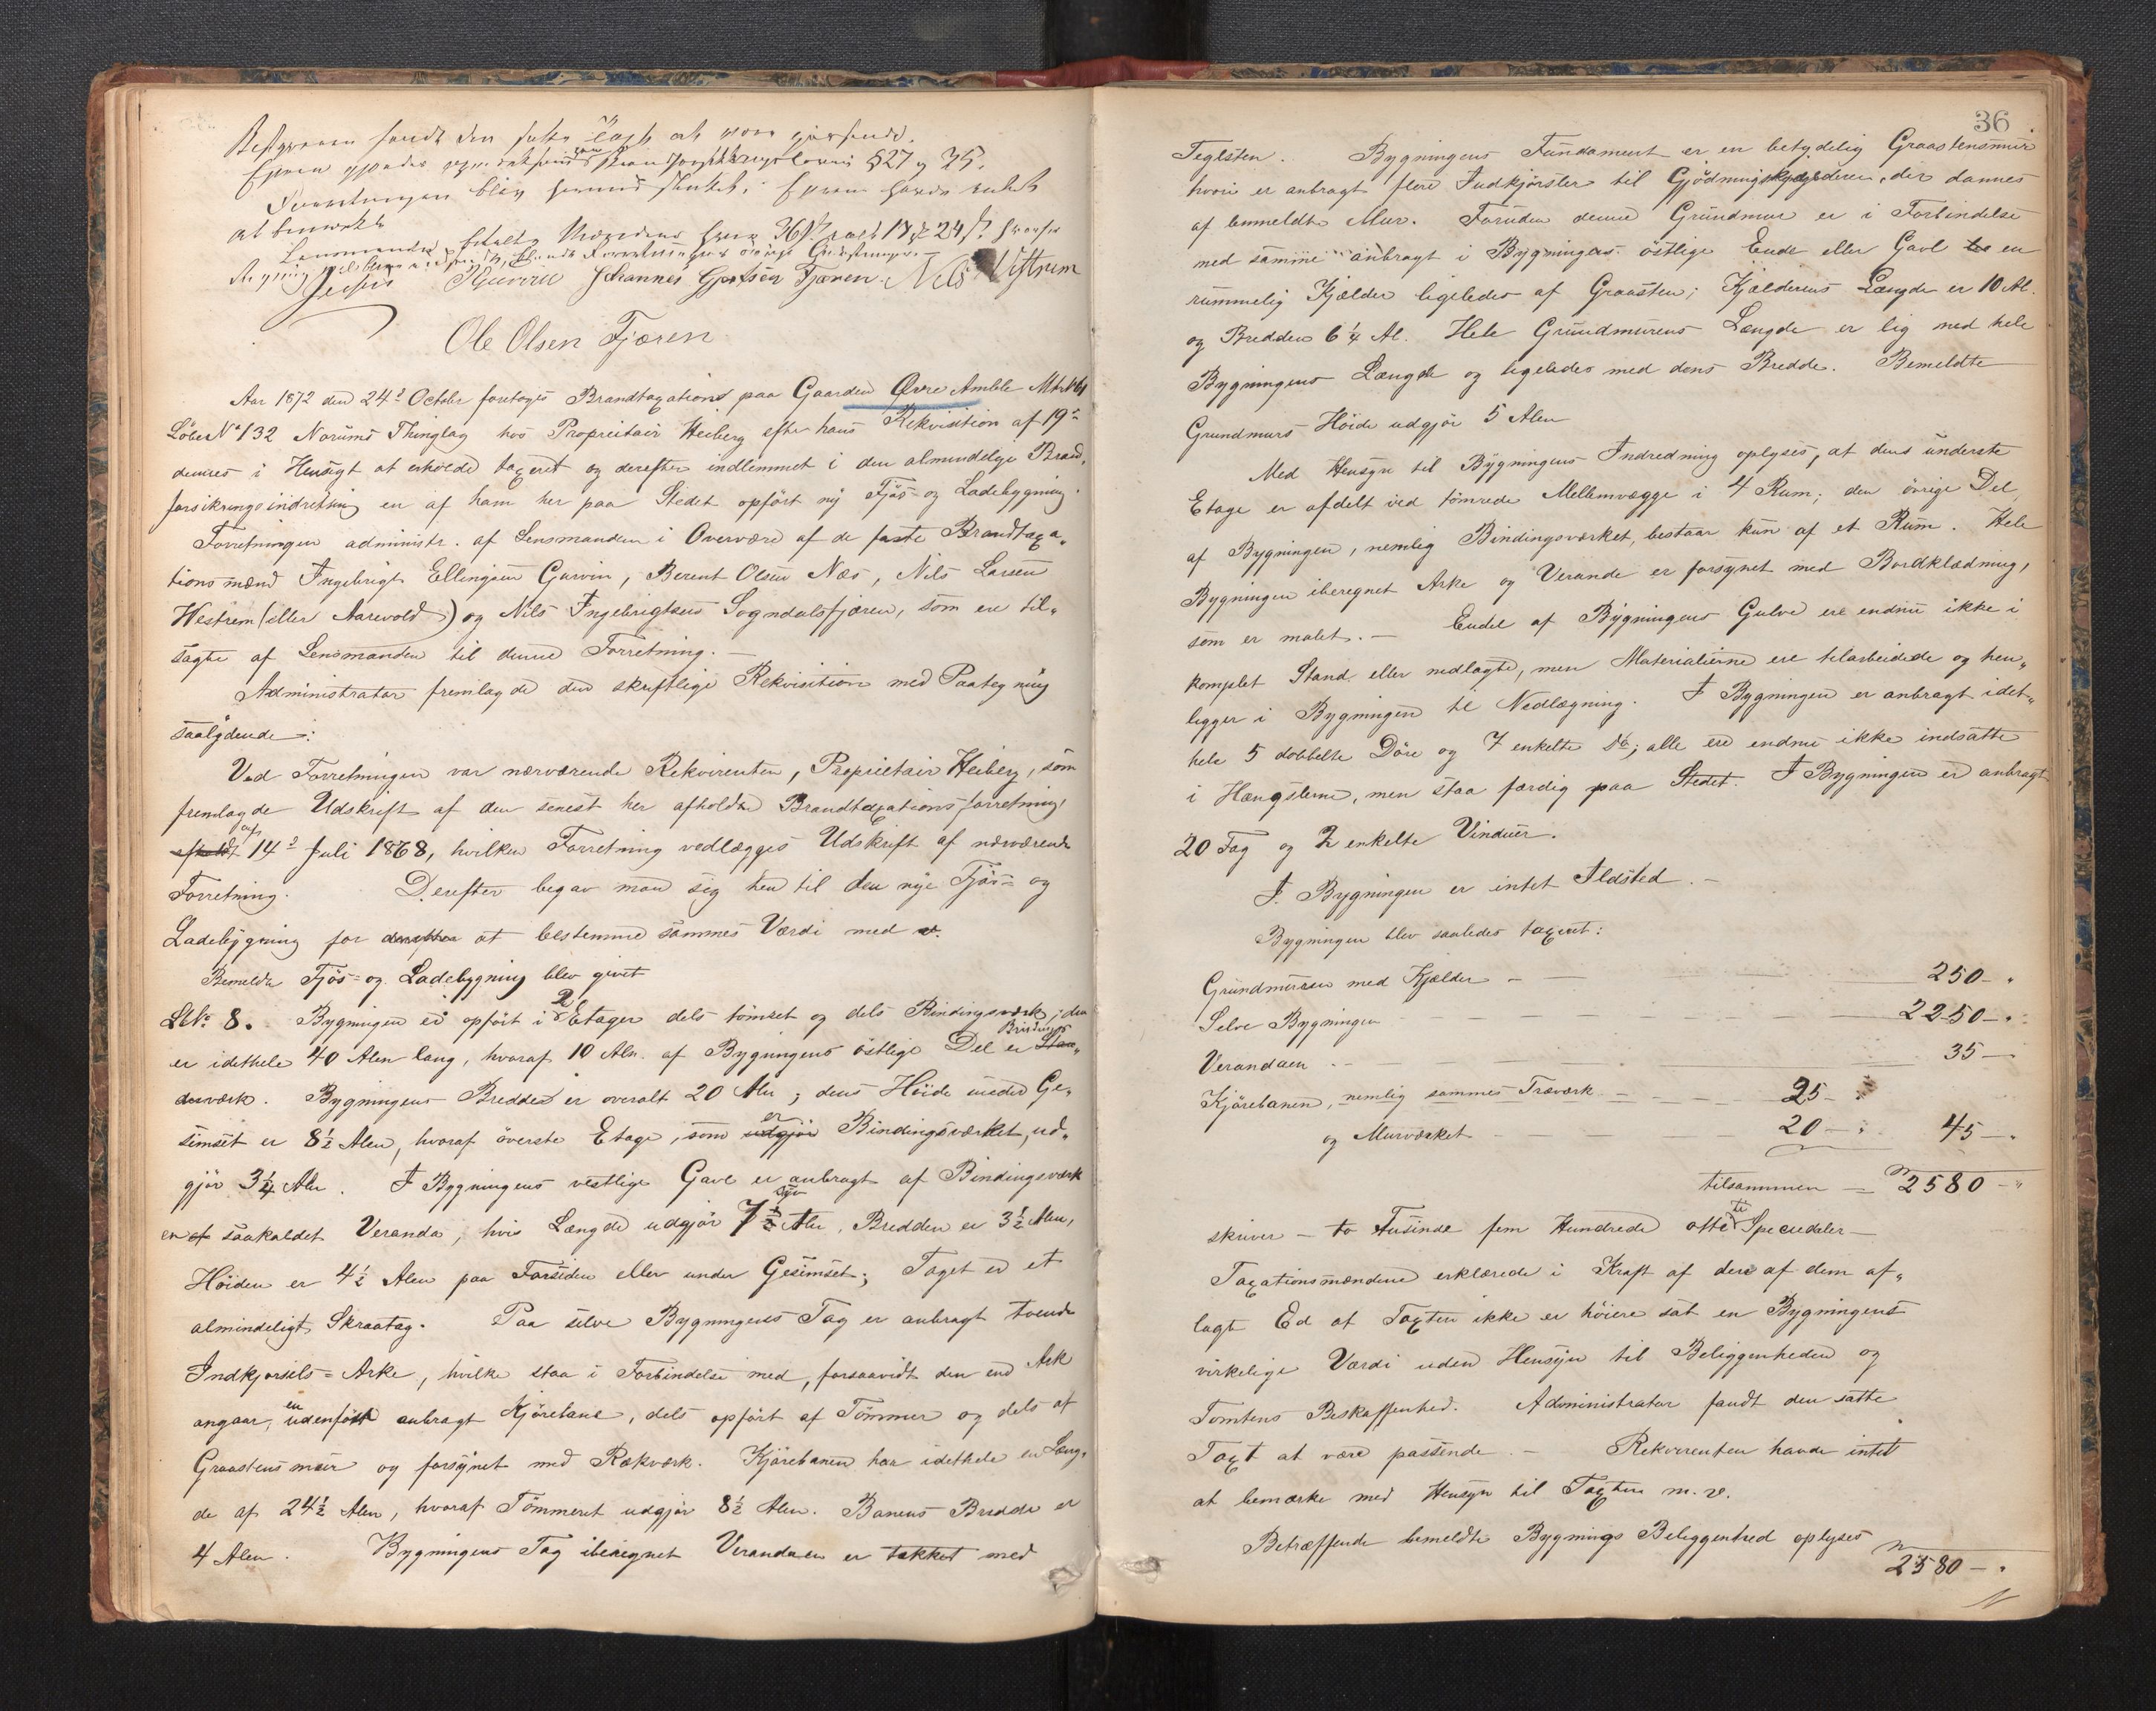 fandt den satte Taxt at være passende.
Eieren §27 og 35.
Forretningen blev hermed sluttet. Eieren havde intet
at bemærke
Johannes Tjæren. Nils Vistrem
Ole Olsen Fjæren
Aar 1872 den 24de October foretoges Brandtaxations paa Gaarden Øvre Amble Mtr No 61
Løbe No 132 Norums Thinglag hos Proprietair Heiberg efter hans Rekvisition af 19de
dennes i Hensigt at erholde taxeret og derefter indlemmet i den almindelige Brand„
forsikringsindretning en af ham her paa Stedet opført ny Fjøs- og Ladebygning.
Forretningen administr. af Lensmanden i Overvære af de faste Brandtaxa„
tionsmænd Ingebrigt Ellingsen Gurvin, Berent Olsen Næs, Nils Larsen
Hestrem (eller Aarevold) og Nils Ingebrigtsen Sogndalsfjæren, som ere til„
sagte af Lensmanden til denne Forretning. —
Administrator fremlagde den skriftlige Rekvisition med Paategning
saalydende:
Ved Forretningen var nærværende Rekvirenten, Proprietair Heiberg, som
fremlagde Udskrift af den senest her afholdte Brandtaxationsforretning
afholdt af 14de Juli 1868, hvilken Forretning vedlægges Udskrift af nærværende
Forretning. Derefter begav man sig hen til den nye Fjøs- og
Ladebygning for derefter at bestemme sammes Værdi med v.
Bemeldte Fjøs- og Ladebygning blev givet
Lit No 8. Bygningen er opført i 2 Etager dels tømret og dels Bindingsværk; den
er idethele 40 Alen lang, hvoraf 10 Aln. af Bygningens østlige Del er Stan„ Bindings
derværk. Bygningens Bredde er overalt 20 Aln; dens Høide under Ge„
simset er 8½ Alen, hvoraf øverste Etage, som udgjør er Bindingsværket, ud„
gjør 3¼ Aln. I Bygningens vestlige Gavl er anbragt af Bindingsværk
en et saakaldet Veranda, hvis Længde udgjør 7½ syv Aln, Bredden er 3½ Alen,
Høiden er 4½ Alen paa Forsiden eller under Gesimset; Taget er et
almindeligt Skraatag. Paa selve Bygningens Tag er anbragt tvende
Indkjørsels-Arke, hvilke staa i Forbindelse med, forsaavidt den end Ark
angaar, en udenfor anbragt Kjørebane, dels opført af Tømmer og dels af
Graastensmur og forsynet med Rækværk. Kjørebanen har idethele en Læng„
de af 24½ Alen, hvoraf Tømmeret udgjør 8½ Alen. Banens Bredde er
4 Alen. Bygningens Tag iberegnet Verandaen er tækket med
36
Teglsten. Bygningens Fundament er en betydelig Graastensmur
hvori er anbragt flere Indkjørsler til Gjødningskjælderen, der dannes
af bemeldte Mur. Foruden denne Grundmur er i Forbindelse
med samme anbragt i Bygningens østlige Ende eller Gavl en
rummelig Kjælder ligeledes af Graasten; Kjælderens Længde er 10 Al.
og Bredden 6¼ Al. Hele Grundmurens Længde er lig med hele
Bygningens Længde og ligeledes med dens Bredde. Bemeldte
Grundmurs Høide udgjør 5 Alen
Med Hensyn til Bygningens Indredning oplyses, at dens underste
Etage er afdelt ved tømrede Mellemvægge i 4 Rum; den øvrige Del
af Bygningen, nemlig Bindingsværket, bestaar kun af et Rum. Hele
Bygningen iberegnet Arke og Verande er forsynet med Bordklædning,
som er malet. — Endel af Bygningens Gulve ere endnu ikke i
komplet Stand eller nedlagte, men Materialierne ere tilarbeidede og hen„
ligger i Bygningen til Nedlægning. I Bygningen er anbragt idet„
hele 5 dobbelte Døre og 7 enkelte do; alle ere endnu ikke indsatte
i Hængslerne, men staa færdig paa Stedet. I Bygningen er anbragt
20 Fag og 2 enkelte Vinduer.
I Bygningen er intet Ildsted. —
Bygningen blev saaledes taxeret:
Grundmuren med Kjælder — 250 — „
Selve Bygningen — 2250 — „
Verandaen — 35 —
Kjørebanen, nemlig sammes Træværk — 25 — „
og Murværket — 20 — „ 45 — „
tilsammen — 2580 — „
skriver — to Tusinde fem Hundrede otteti Speciedaler —
Taxationsmændene erklærede i Kraft af den af dem af„
lagte Ed at Taxten ikke er høiere sat en Bygningens
virkelige Værdi uden Hensyn til Beliggenheden og
Tomtens Beskaffenhed. Administrator fandt den satte
Taxt at være passende. — Rekvirenten havde intet
at bemærke med Hensyn til Taxten m. v.
Betræffende bemeldte Bygnings Beliggenhed oplyses
2580 — „